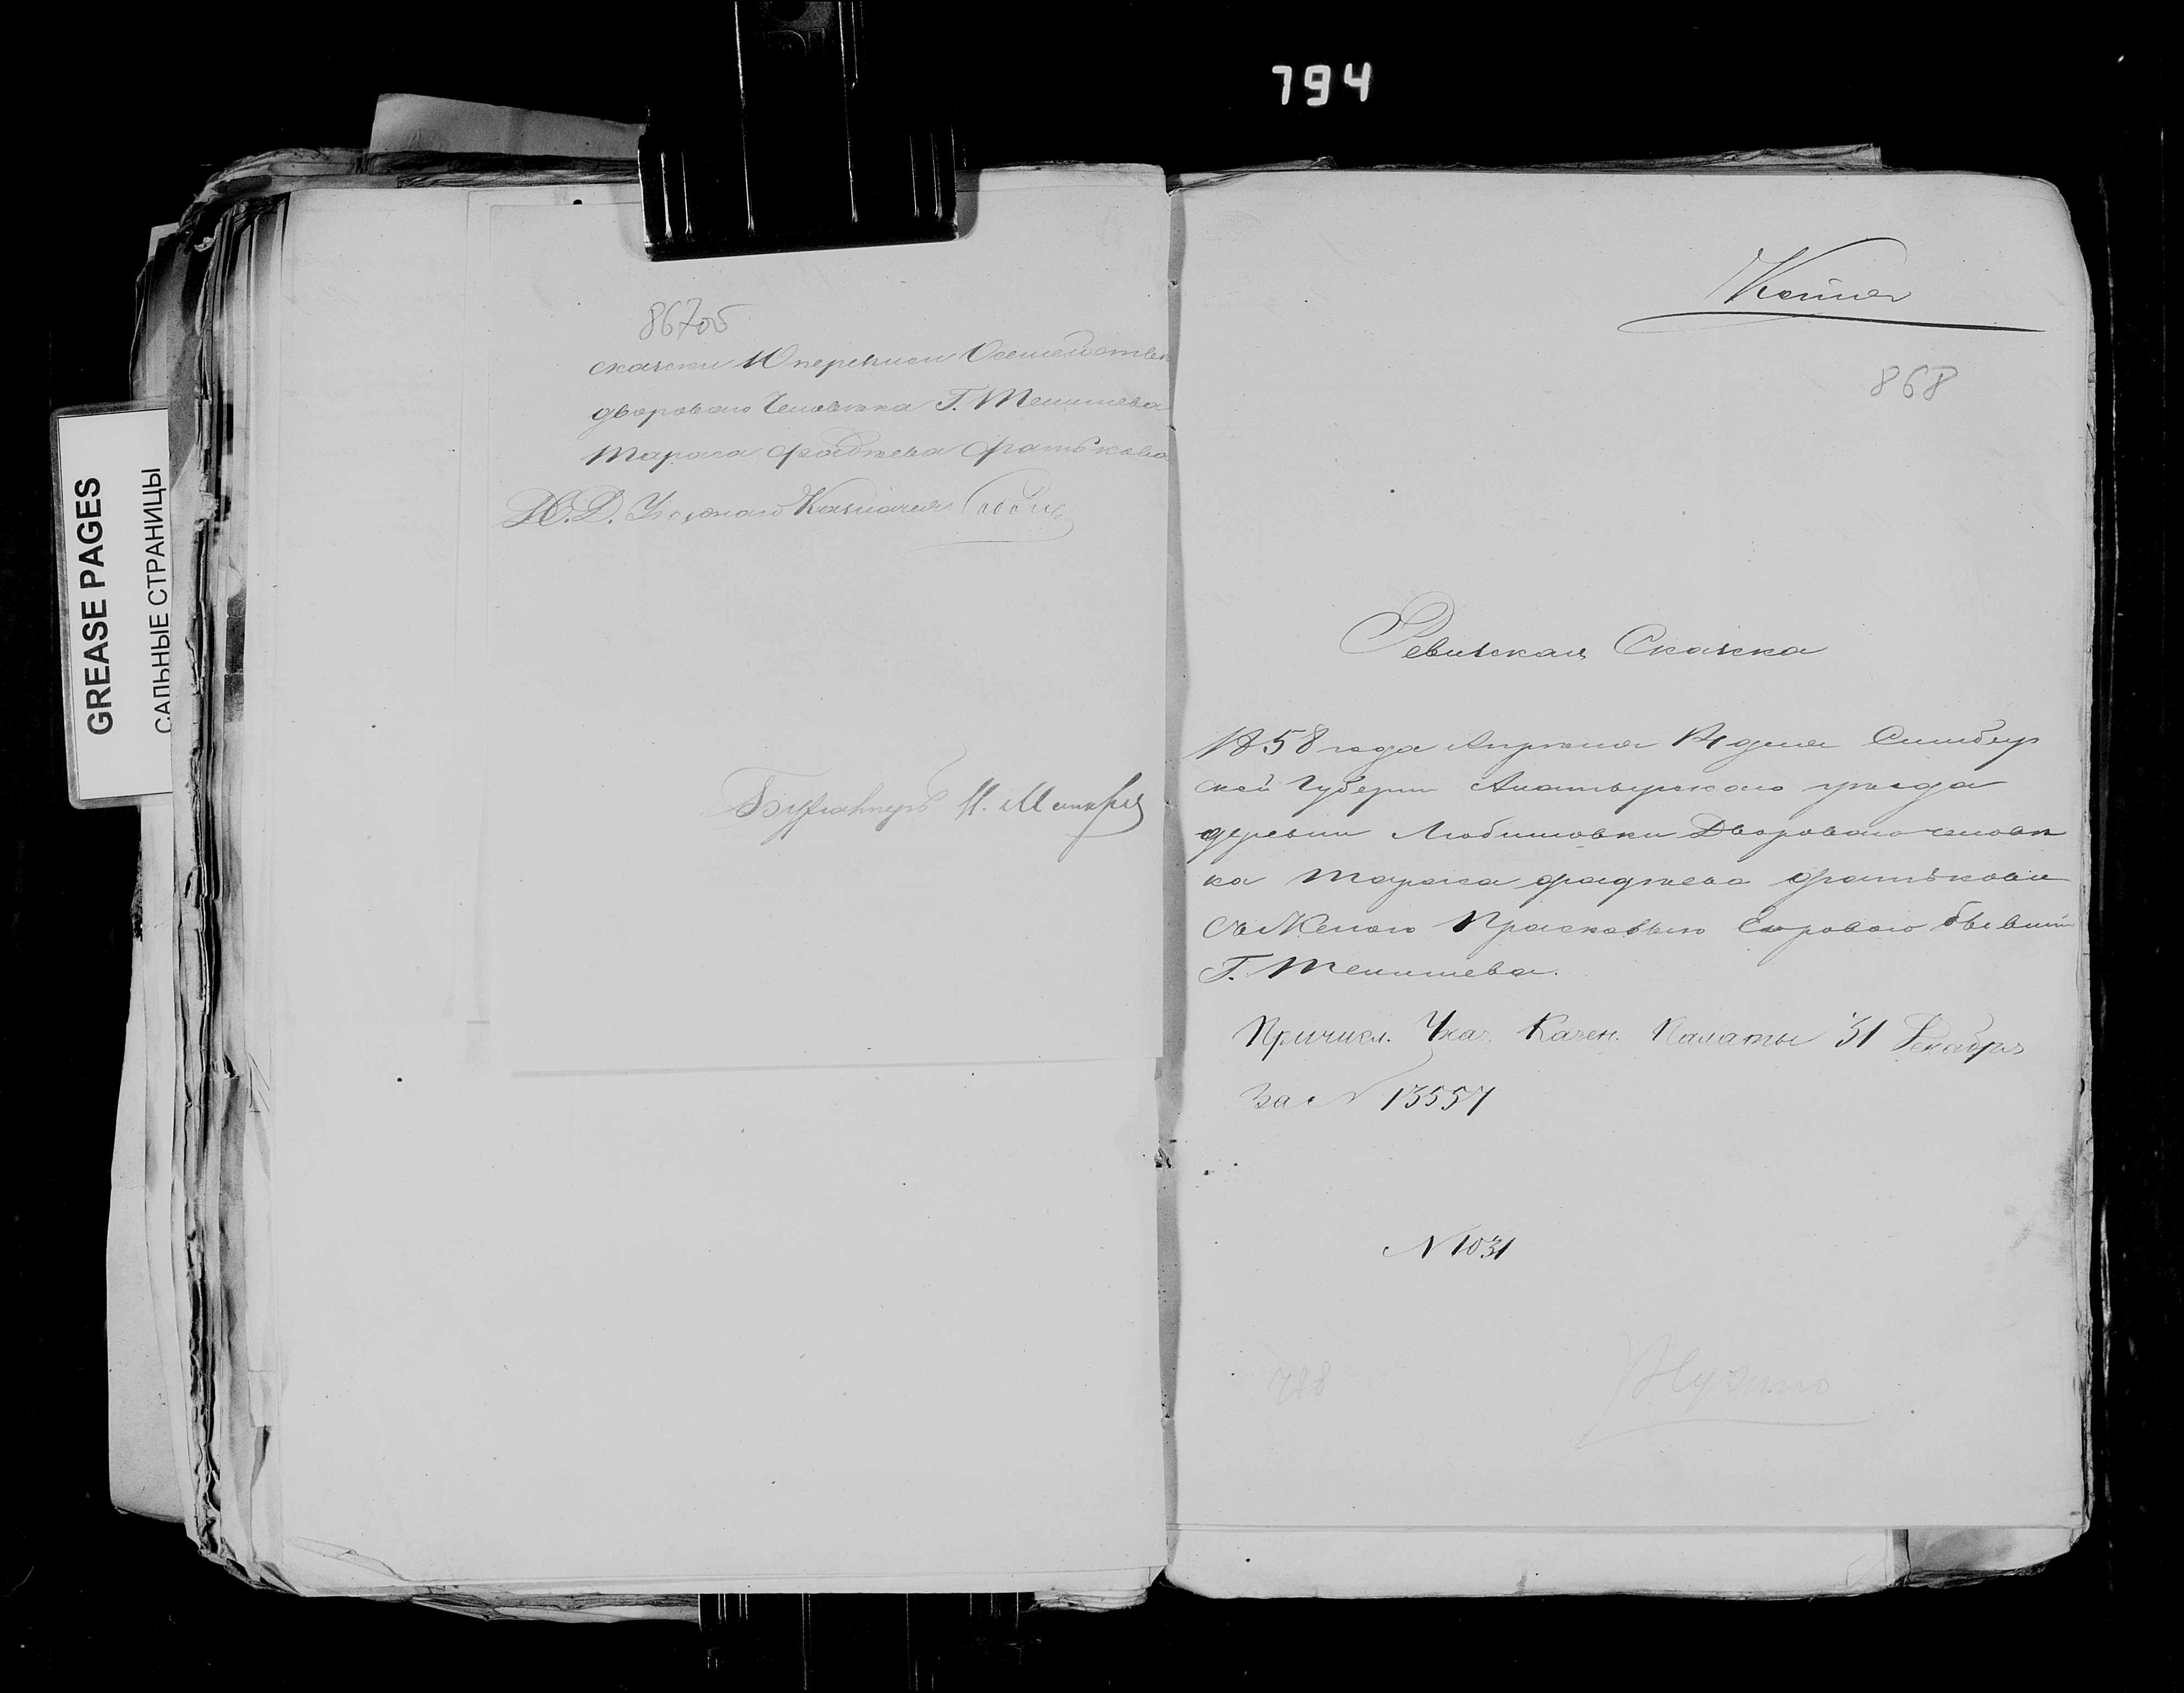 794
GREASE PAGES
САЛЬНЫЕ СТРАНИЦЫ
867об
сказки 10 переписи О семействе
двороваго Человѣка Г. Тенишева
Тараса Фадѣева Фатькова
Ю. Д. Уѣзднаго Казначея
Бухгалтеръ И.
Копия
868
Ревизская Сказка
1858 года Апреля 14 дня Симбир
ской Губерни Алатырскаго уезда
деревни Любимовки Двороваго человѣ
ка Тараса Фадѣева Фатькова
съ Женою Прасковьею Егоровою бывшии
Г. Тенишева.
Причисл. Указ. Казен. Палаты 31 Декабря
За N 13557
N 1031
788